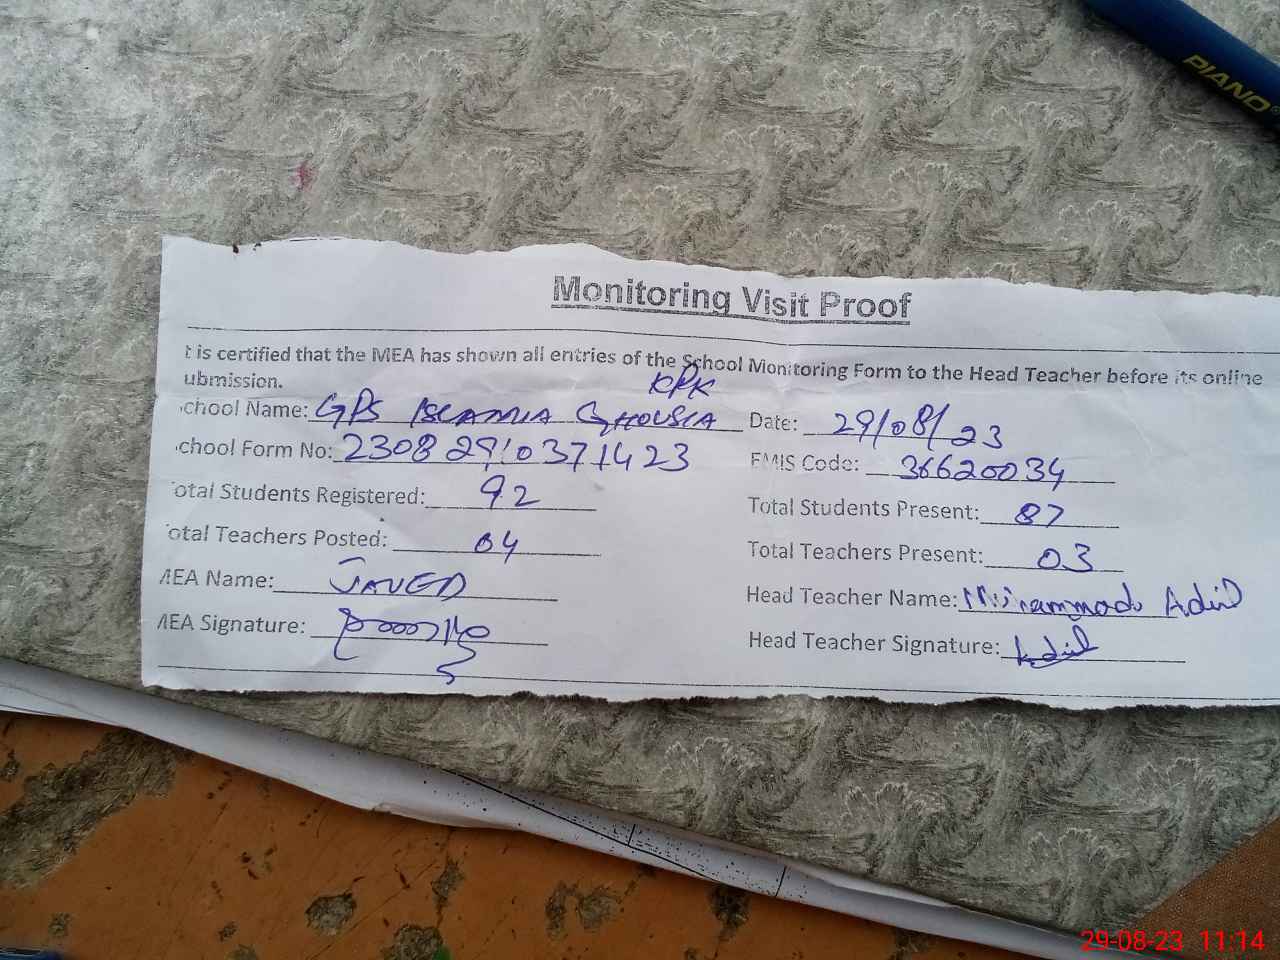 PIANO
Monitoring Visit Proof
t is certified that the MEA has shown all entries of the School Monitoring Form to the Head Teacher before its online
ubmission.
KPK
chool Name: GPS ISLAMIA GHOUSIA Date: 29/08/23
chool Form No: 2308 29 0371423 EMIS Code: 36620034
otal Students Registered: 92 Total Students Present: 87
otal Teachers Posted: 04 Total Teachers Present: 03
MEA Name: JAVED Head Teacher Name: Muhammad Adil
MEA Signature: Head Teacher Signature: Adil
29-08-23 11:14